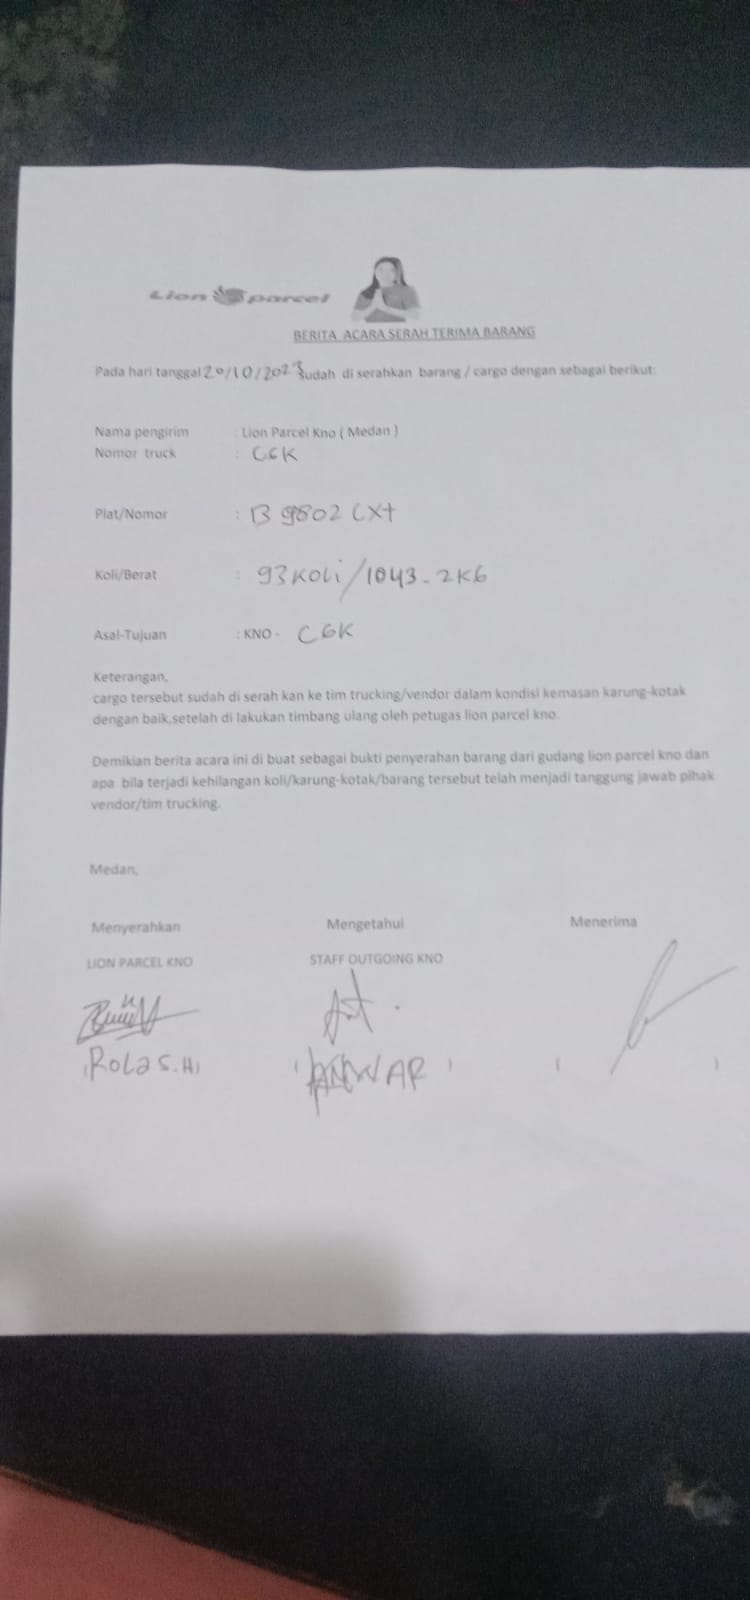 Lion parcel
BERITA ACARA SERAH TERIMA BARANG
Pada hari tanggal 20/10/2023 sudah di serahkan barang / cargo dengan sebagai berikut:
Nama pengirim : Lion Parcel Kno ( Medan )
Nomor truck : CGK
Plat/Nomor : B 9802 CXT
Koli/Berat : 93 KOLI/1043-2KG
Asal-Tujuan : KNO - CGK
Keterangan,
cargo tersebut sudah di serah kan ke tim trucking/vendor dalam kondisi kemasan karung-kotak
dengan baik,setelah di lakukan timbang ulang oleh petugas lion parcel kno.
Demikian berita acara ini di buat sebagai bukti penyerahan barang dari gudang lion parcel kno dan
apa bila terjadi kehilangan koli/karung-kotak/barang tersebut telah menjadi tanggung jawab pihak
vendor/tim trucking.
Medan,
Menyerahkan Mengetahui Menerima
LION PARCEL KNO STAFF OUTGOING KNO
(Rolas.H) (ANWAR) ( )